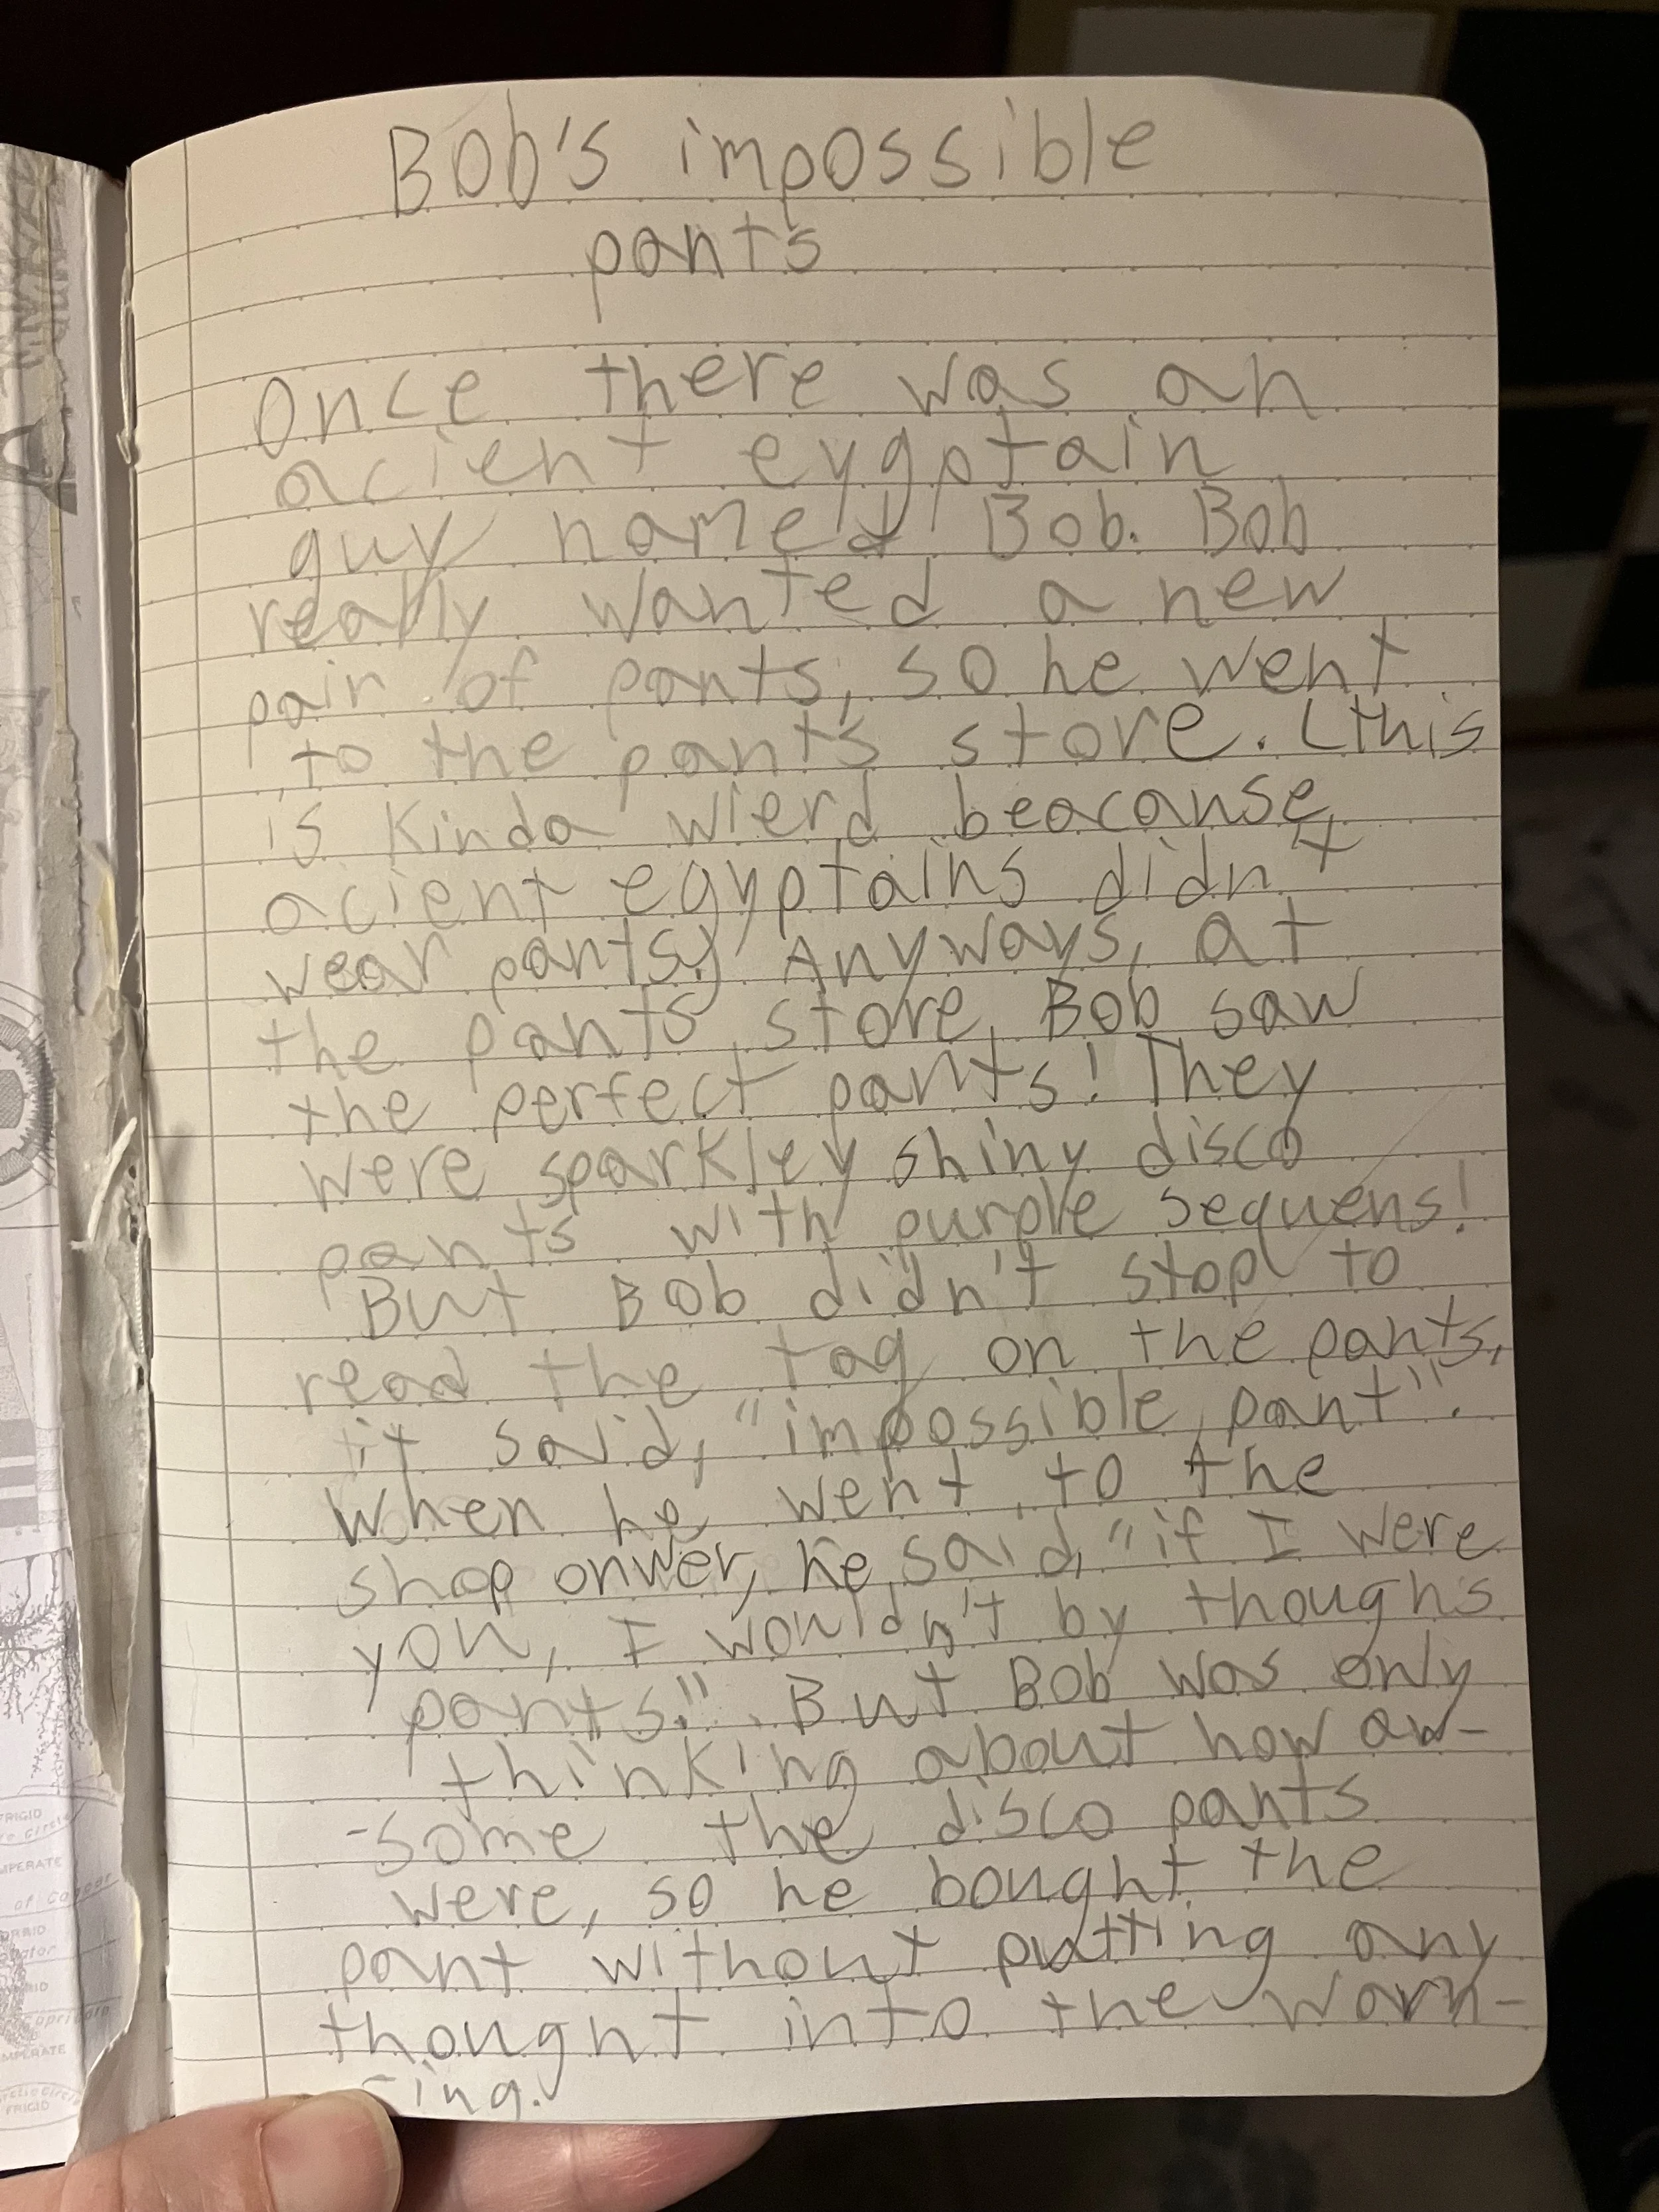 Bob's impossible
pants
Once there was an
acient eygptain
guy named Bob. Bob
really wanted a new
pair of pants, so he went
to the pants store. (this
is kinda wierd beacause
acient egyptains didn't
wear pants.) Anyways, at
the pants store, Bob saw
the perfect pants! They
were sparkley shiny disco
pants with purple sequens!
But Bob didn't stop to
read the tag on the pants,
it said, "impossible pant".
When he went to the
shop onwer, he said, "if I were
you, I wouldn't by thoughs
pants.". But Bob was only
thinking about how aw-
-some the disco pants
were, so he bought the
pant without putting any
thought into the warn-
-ing.
FRIGID
MPERATE
of Cancer
MPERATE
FRIGID